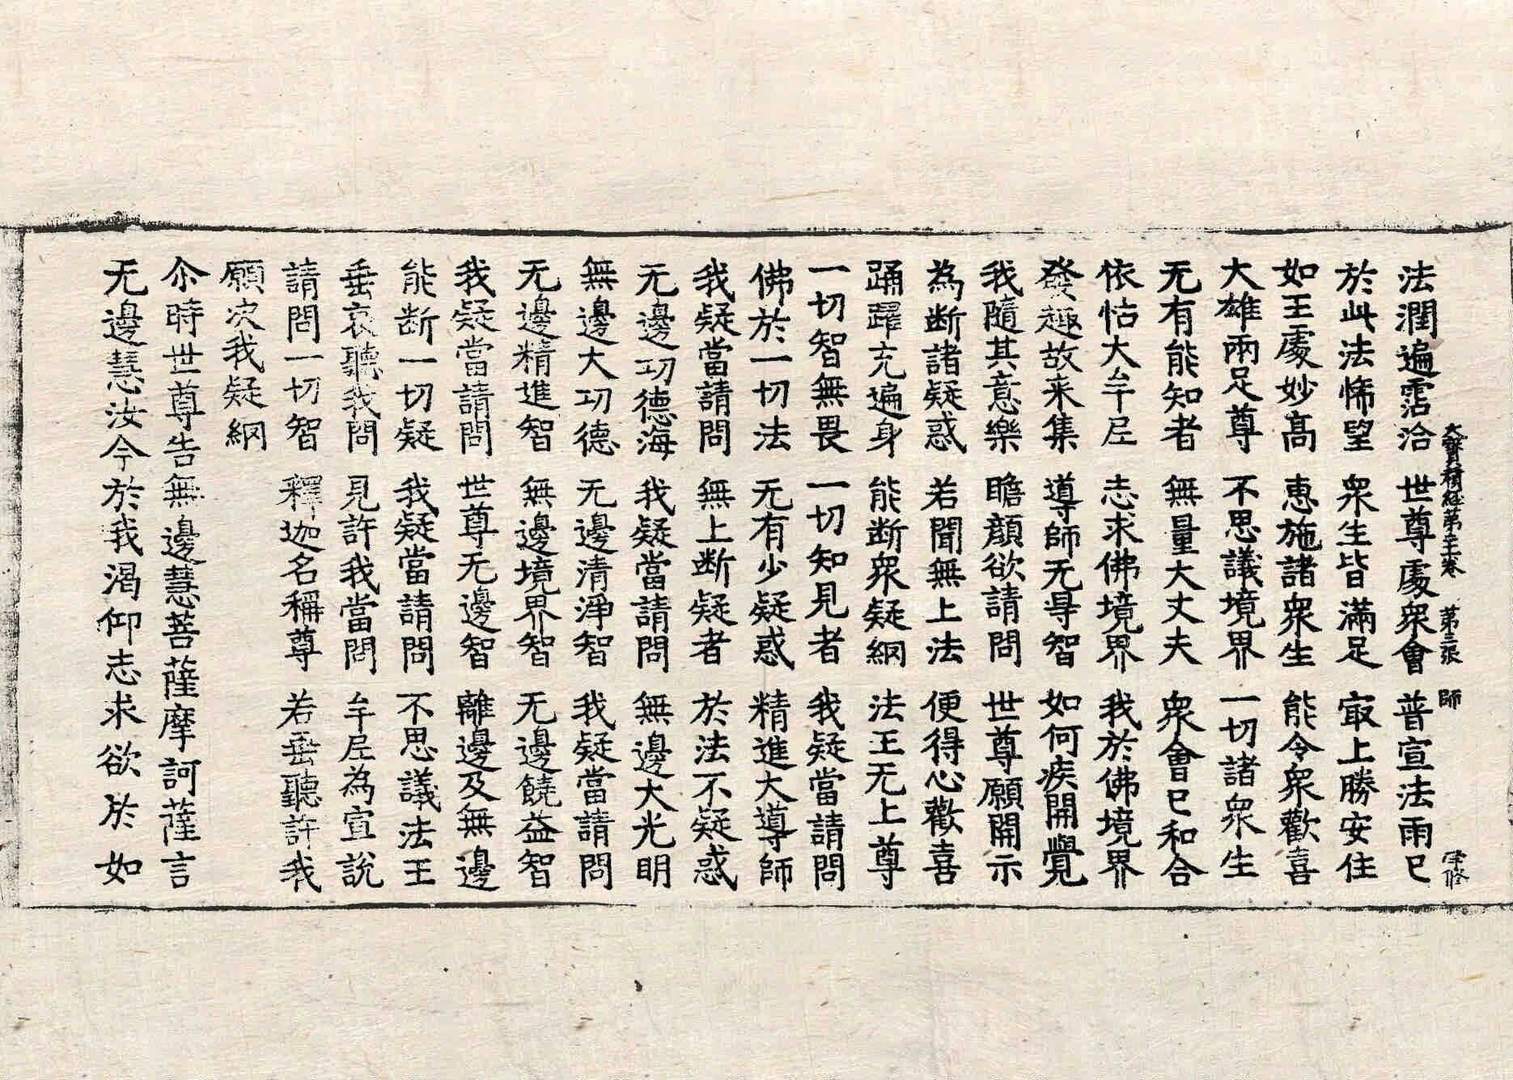 大寶積経第二十一卷 第三張 師
法潤遍霑洽 世尊處衆會 普宣法雨已
於此法悕望 衆生皆滿足 㝡上勝安住
如王處妙高 惠施諸衆生 能令衆歡喜
大雄兩足尊 不思議境界 一切諸衆生
无有能知者 無量大丈夫 衆會已和合
依怙大牟尼 志求佛境界 我於佛境界
發趣故来集 導師无㝵智 如何疾開覺
我隨其意樂 瞻顔欲請問 世尊願開示
為断諸疑惑 若聞無上法 便得心歡喜
踊躍充遍身 能断衆疑網 法王无上尊
一切智無畏 一切知見者 我疑當請問
佛於一切法 无有少疑惑 精進大導師
我疑當請問 無上断疑者 於法不疑惑
无邊功德海 我疑當請問 無邊大光明
無邊大功德 无邊清淨智 我疑當請問
无邊精進智 無邊境界智 无邊饒益智
我疑當請問 世尊无邊智 離邊及無邊
能断一切疑 我疑當請問 不思議法王
垂哀聽我問 見許我當問 牟尼為宣說
請問一切智 釋迦名稱尊 若垂聽許我
願决我疑網
尒時世尊告無邊慧菩薩摩訶薩言
无邊慧汝今於我渴仰志求欲於如